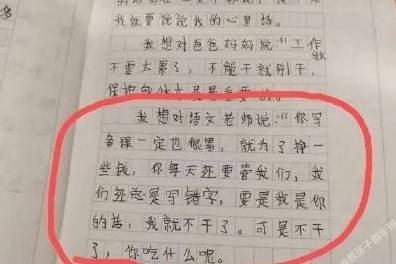 我就要说说我的心里话。
我想对爸爸妈妈说:“工作
不要太累了,不能干就别干,
我想对语文老师说:“你写
备课一定也很累,就为了挣一
些钱,你每天还要管我们,我
们还总是写错字,要是我是你
的话,我就不干了。可是不干
了,你吃什么呢。